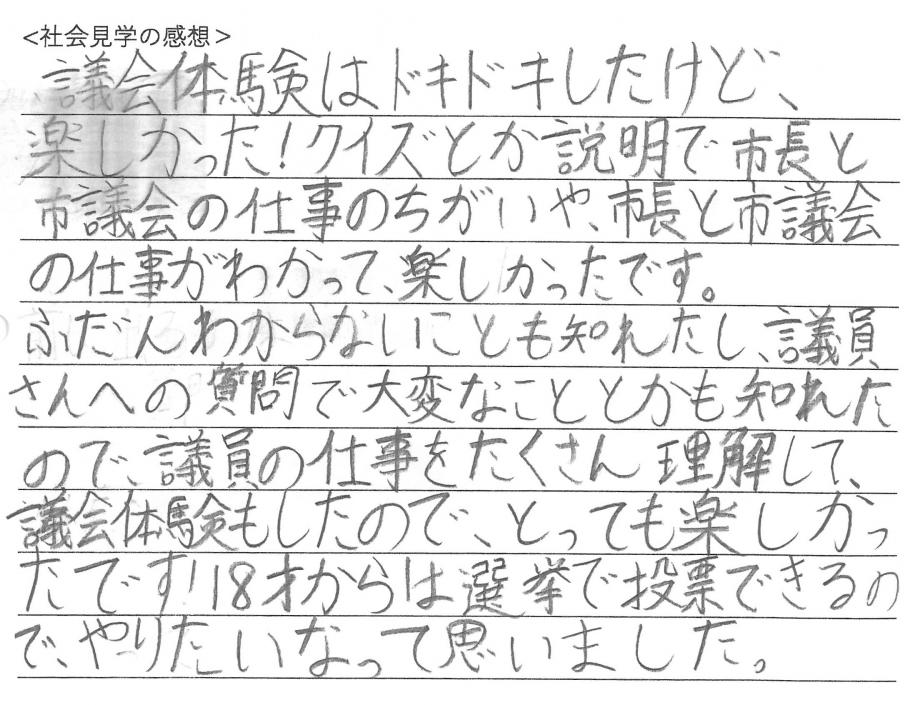 <社会見学の感想>
議会体験はドキドキしたけど、
楽しかった!クイズとか説明で市長と
市議会の仕事のちがいや、市長と市議会
の仕事がわかって、楽しかったです。
ふだんわからないことも知れたし、議員
さんへの質問で大変なこととかも知れた
ので、議員の仕事をたくさん理解して、
議会体験もしたので、とっても楽しかっ
たです!18才からは選挙で投票できるの
で、やりたいなって思いました。